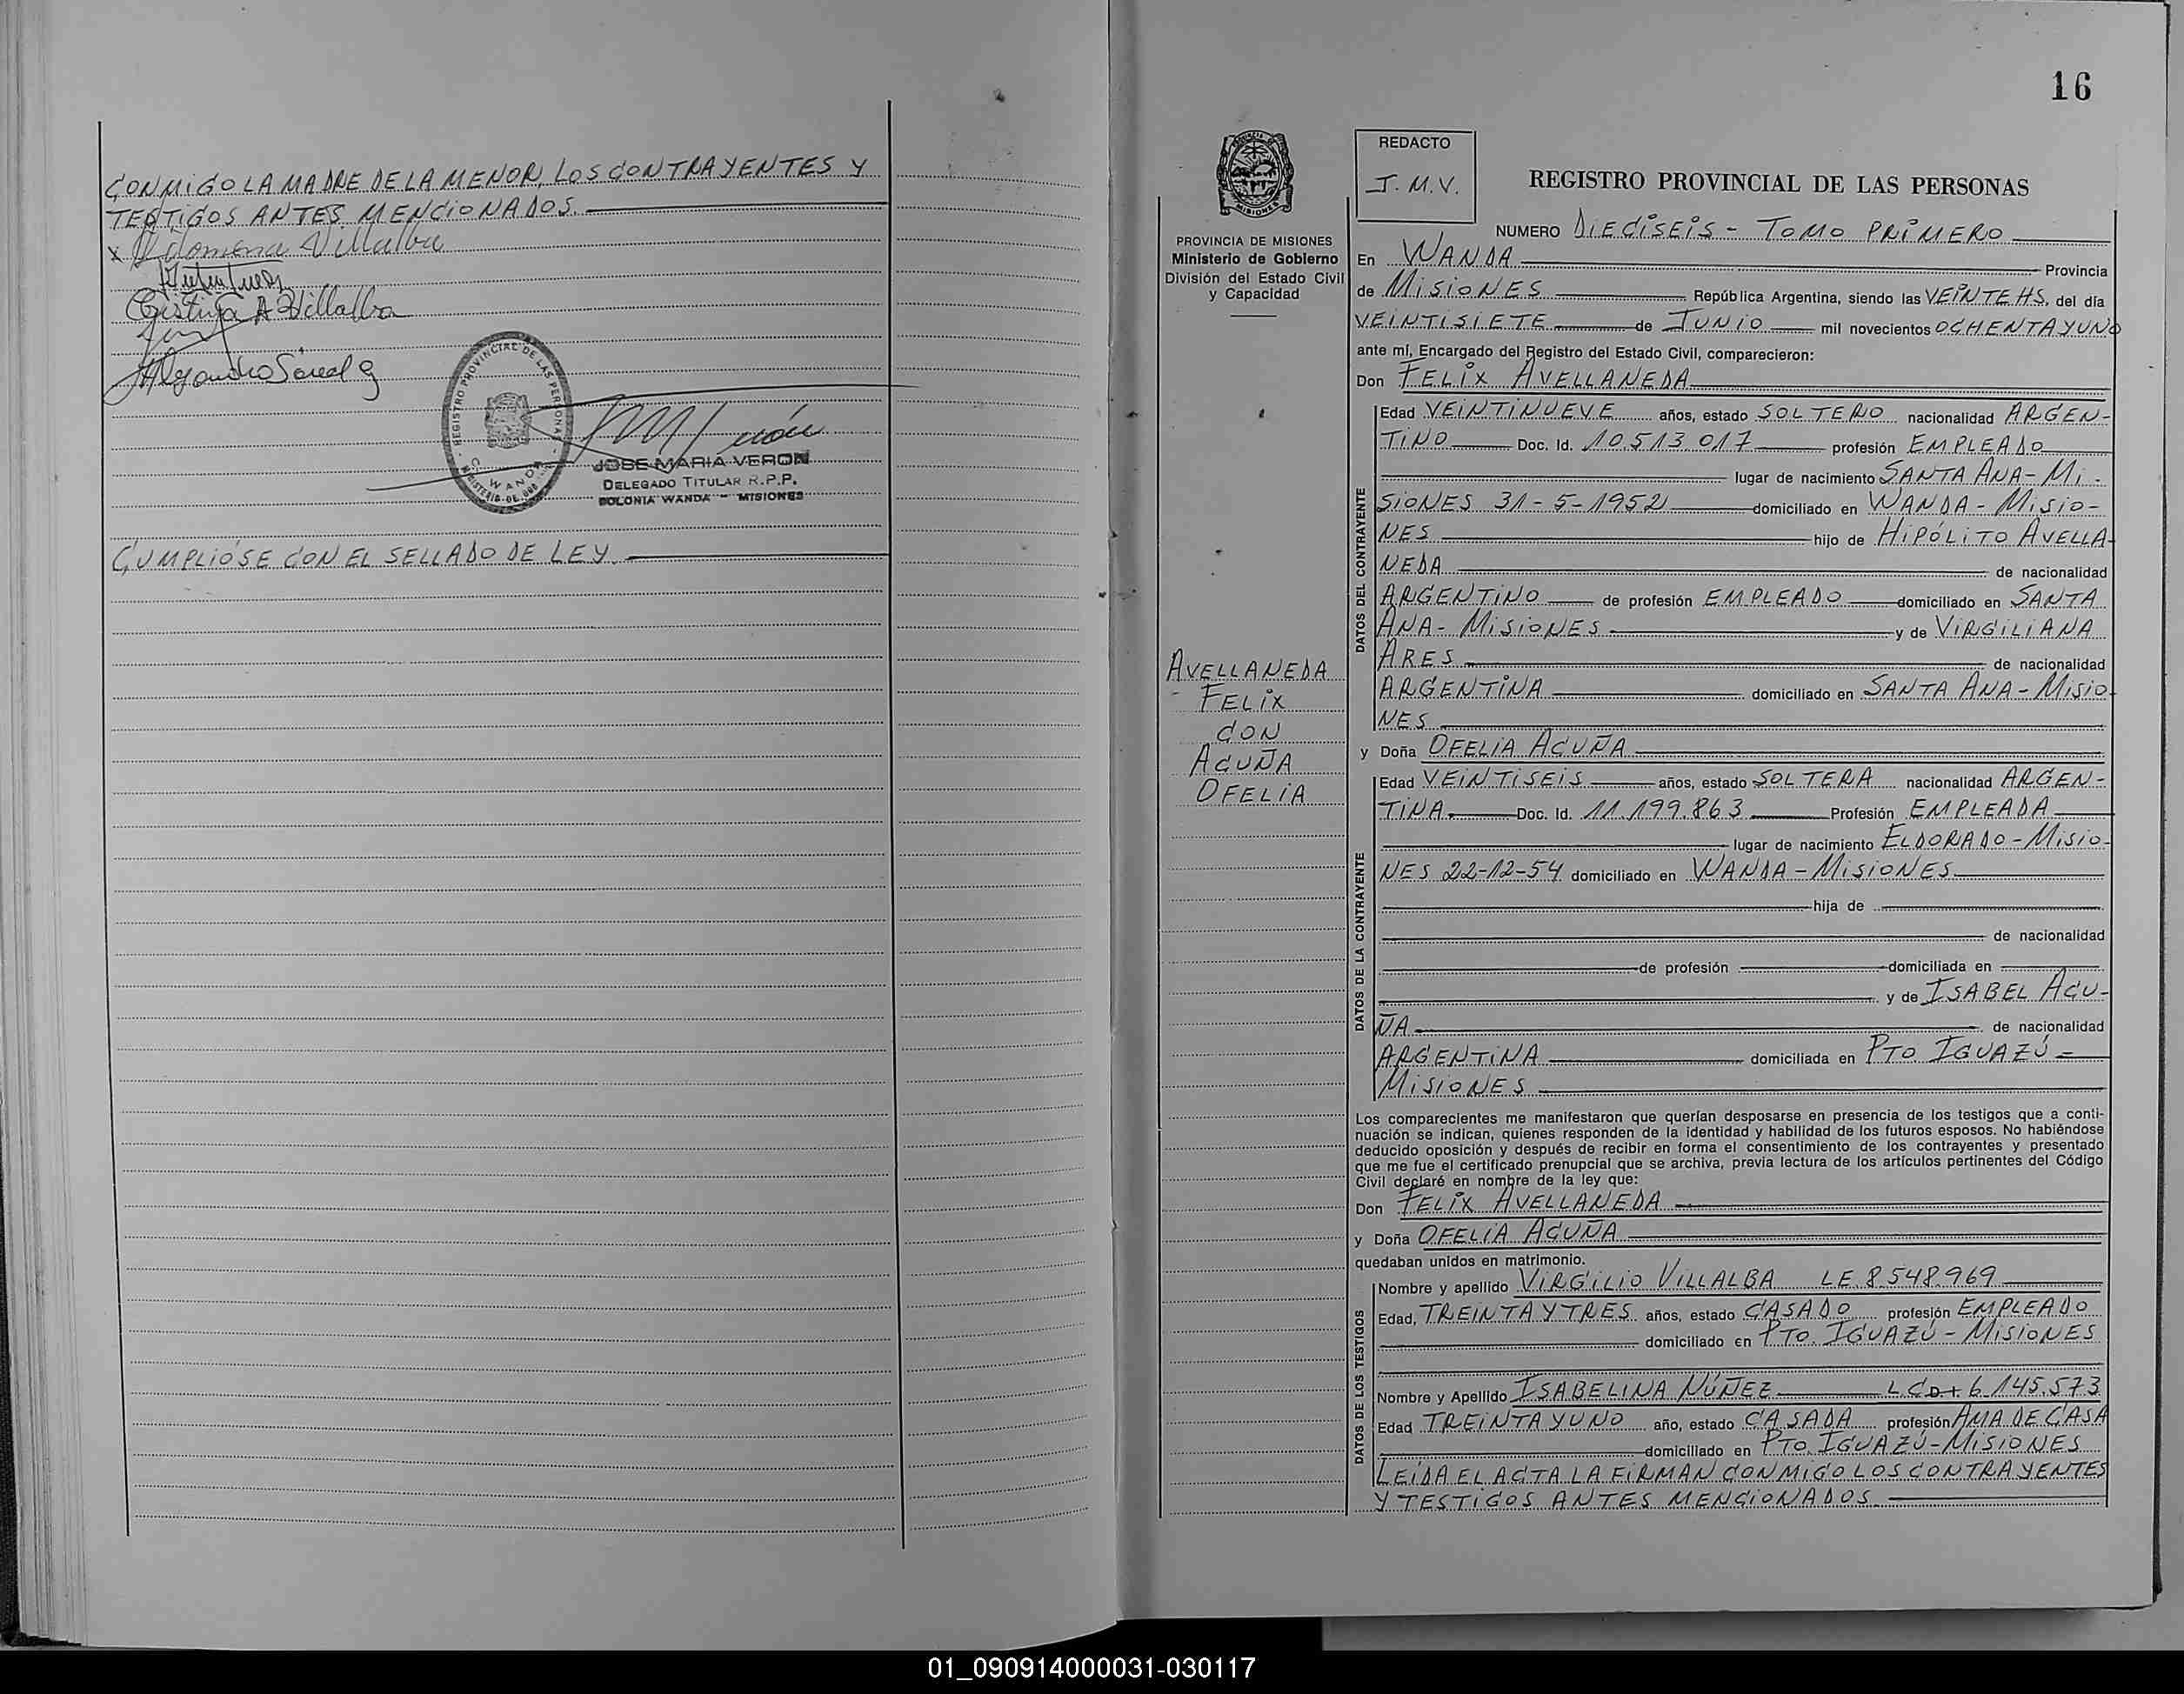 CONMIGO LA MADRE DE LA MENOR, LOS CONTRAYENTES Y
TESTIGOS ANTES MENCIONADOS.
x Filomena Villalba
Cristina A Villalba
Alejandro
REGISTRO PROVINCIAL DE LAS PERSONAS
WANDA
JOSE MARIA VERON
DELEGADO TITULAR R.P.P.
COLONIA WANDA - MISIONES
CUMPLIÓSE CON EL SELLADO DE LEY.
16
PROVINCIA DE MISIONES
Ministerio de Gobierno
División del Estado Civil
y Capacidad
AVELLANEDA
FELIX
CON
ACUÑA
OFELIA
REDACTO
J.M.V.
REGISTRO PROVINCIAL DE LAS PERSONAS
NUMERO DIECISEIS - TOMO PRIMERO
En WANDA Provincia
de MISIONES República Argentina, siendo las VEINTE HS. del día
VEINTISIETE de JUNIO mil novecientos OCHENTA Y UNO
ante mí, Encargado del Registro del Estado Civil, comparecieron:
Don FELIX AVELLANEDA
DATOS DEL CONTRAYENTE
Edad VEINTINUEVE años, estado SOLTERO nacionalidad ARGEN-
TINO Doc. Id. 10.513.017 profesión EMPLEADO
lugar de nacimiento SANTA ANA - MI-
SIONES 31-5-1952 domiciliado en WANDA - MISIO-
NES hijo de HIPÓLITO AVELLA-
NEDA de nacionalidad
ARGENTINO de profesión EMPLEADO domiciliado en SANTA
ANA - MISIONES y de VIRGILIANA
ARES de nacionalidad
ARGENTINA domiciliado en SANTA ANA - MISIO-
NES
y Doña OFELIA ACUÑA
DATOS DE LA CONTRAYENTE
Edad VEINTISEIS años, estado SOLTERA nacionalidad ARGEN-
TINA. Doc. Id. 11.199.863 Profesión EMPLEADA
lugar de nacimiento ELDORADO - MISIO-
NES 22-12-54 domiciliado en WANDA - MISIONES
hija de
de nacionalidad
de profesión domiciliada en
y de ISABEL ACU-
ÑA de nacionalidad
ARGENTINA domiciliada en PTO. IGUAZÚ -
MISIONES
Los comparecientes me manifestaron que querían desposarse en presencia de los testigos que a conti-
nuación se indican, quienes responden de la identidad y habilidad de los futuros esposos. No habiéndose
deducido oposición y después de recibir en forma el consentimiento de los contrayentes y presentado
que me fue el certificado prenupcial que se archiva, previa lectura de los artículos pertinentes del Código
Civil declaré en nombre de la ley que:
Don FELIX AVELLANEDA
y Doña OFELIA ACUÑA
quedaban unidos en matrimonio.
DATOS DE LOS TESTIGOS
Nombre y apellido VIRGILIO VILLALBA LE 8.548.969
Edad, TREINTA Y TRES años, estado CASADO profesión EMPLEADO
domiciliado en PTO. IGUAZÚ - MISIONES
Nombre y Apellido ISABELINA NÚÑEZ L.C. 6.145.573
Edad TREINTA Y UNO año, estado CASADA profesión AMA DE CASA
domiciliado en PTO. IGUAZÚ - MISIONES
LEÍDA EL ACTA LA FIRMAN CONMIGO LOS CONTRAYENTES
Y TESTIGOS ANTES MENCIONADOS.
01_090914000031-030117